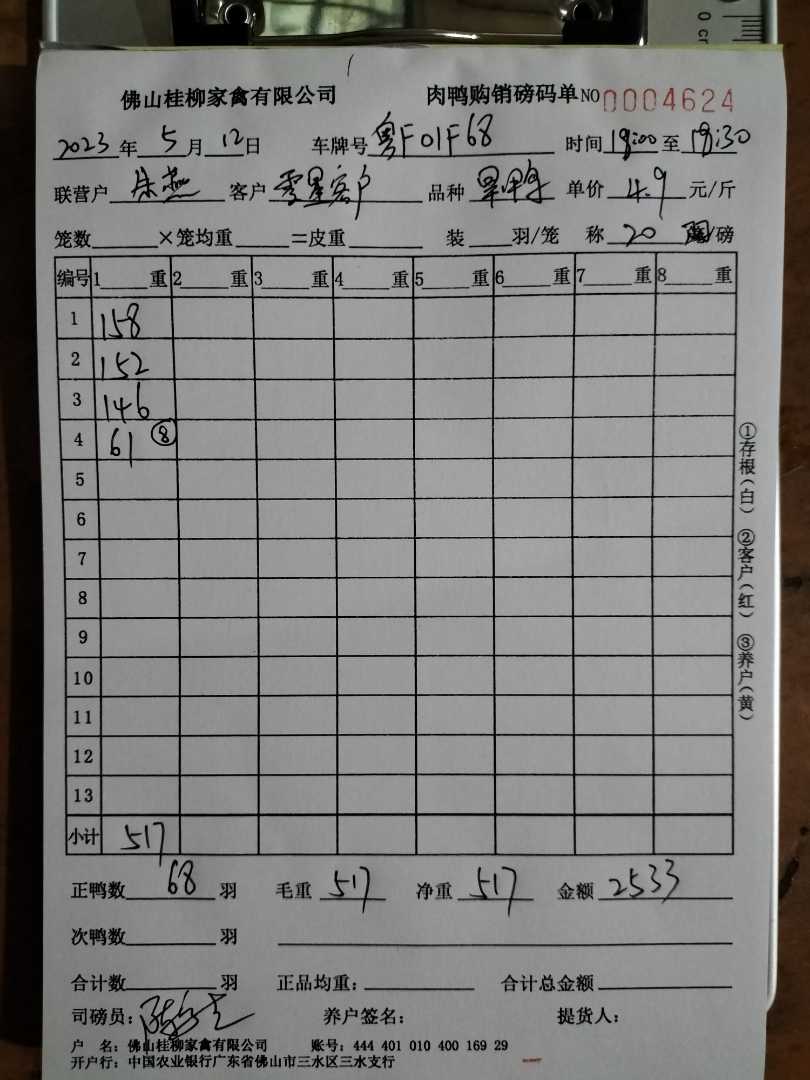 佛山桂柳家禽有限公司 肉鸭购销磅码单NO 0004624
2023 年 5 月 12 日 车牌号 粤F01F68 时间 19:00 至 19:30
联营户 朱燕 客户 零星客户 品种 单价 4.9 元/斤
笼数 ×笼均重 =皮重 装 羽/笼 称 20 /磅
编号 1 重 2 重 3 重 4 重 5 重 6 重 7 重 8 重
1 158
2 152
3 146
4 61 ⑧
5
6
7
8
9
10
11
12
13
小计 517
正鸭数 68 羽 毛重 517 净重 517 金额 2533
次鸭数 羽
合计数 羽 正品均重: 合计总金额
司磅员: 养户签名: 提货人:
户 名: 佛山桂柳家禽有限公司 账号: 444 401 010 400 169 29
开户行: 中国农业银行广东省佛山市三水区三水支行
①存根(白) ②客户(红) ③养户(黄)
0 cm